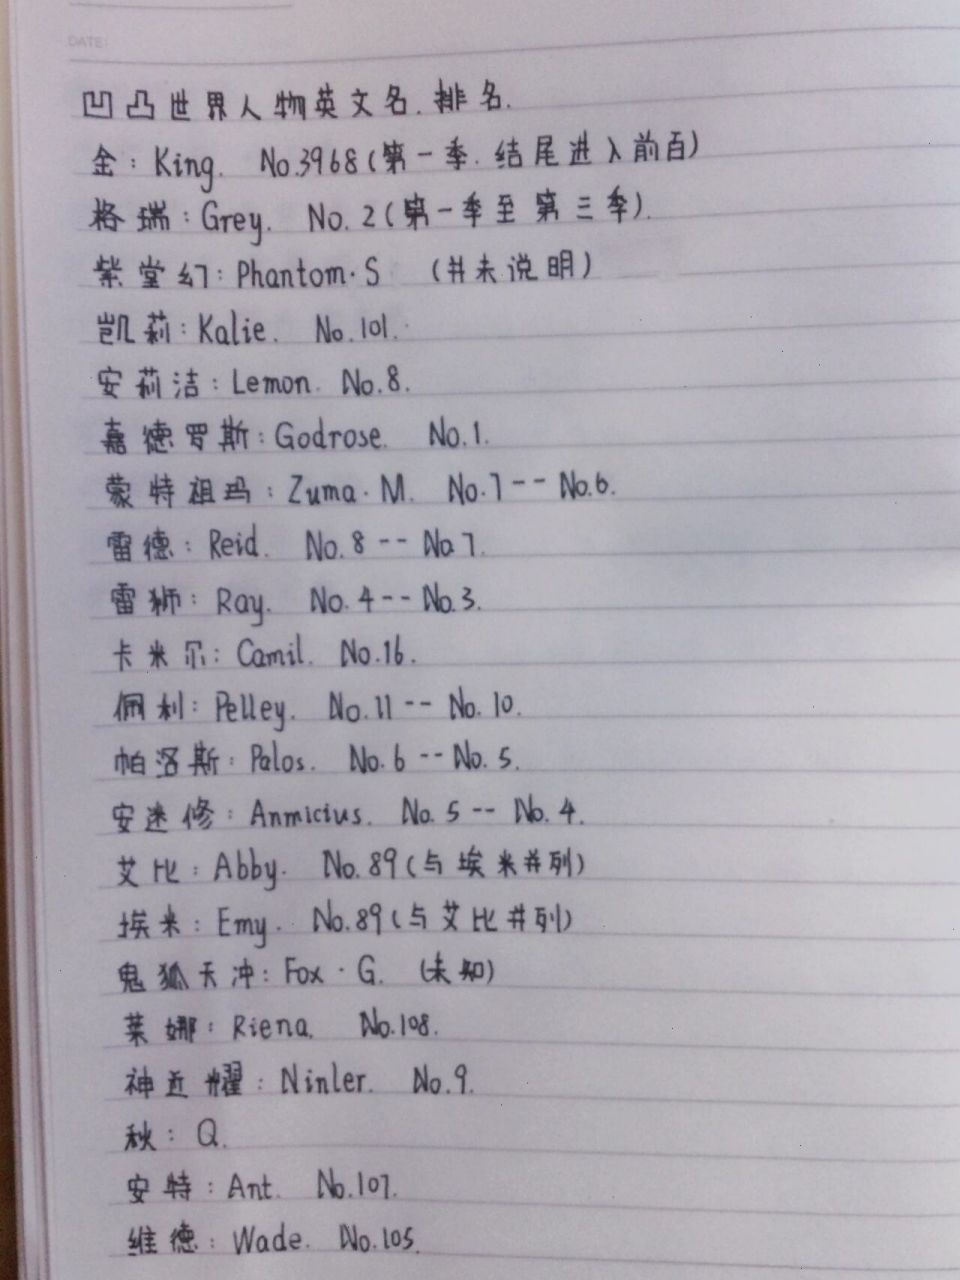 DATE:
凹凸世界人物英文名.排名.
金:King. No.3968(第一季.结尾进入前百)
格瑞:Grey. No.2(第一季至第三季).
紫堂幻:Phantom·S (并未说明)
凯莉:Kalie. No.101.
安莉洁:Lemon. No.8.
嘉德罗斯:Godrose. No.1.
蒙特祖玛:Zuma·M. No.7--No.6.
雷德:Reid. No.8--No.7.
雷狮:Ray. No.4--No.3.
卡米尔:Camil. No.16.
佩利:Pelley. No.11--No.10.
帕洛斯:Palos. No.6--No.5.
安迷修:Anmicius. No.5--No.4.
艾比:Abby. No.89(与埃米并列)
埃米:Emy. No.89(与艾比并列)
鬼狐天冲:Fox·G. (未知)
莱娜:Riena. No.108.
神近耀:Ninler. No.9.
秋:Q.
安特:Ant. No.107.
维德:Wade. No.105.